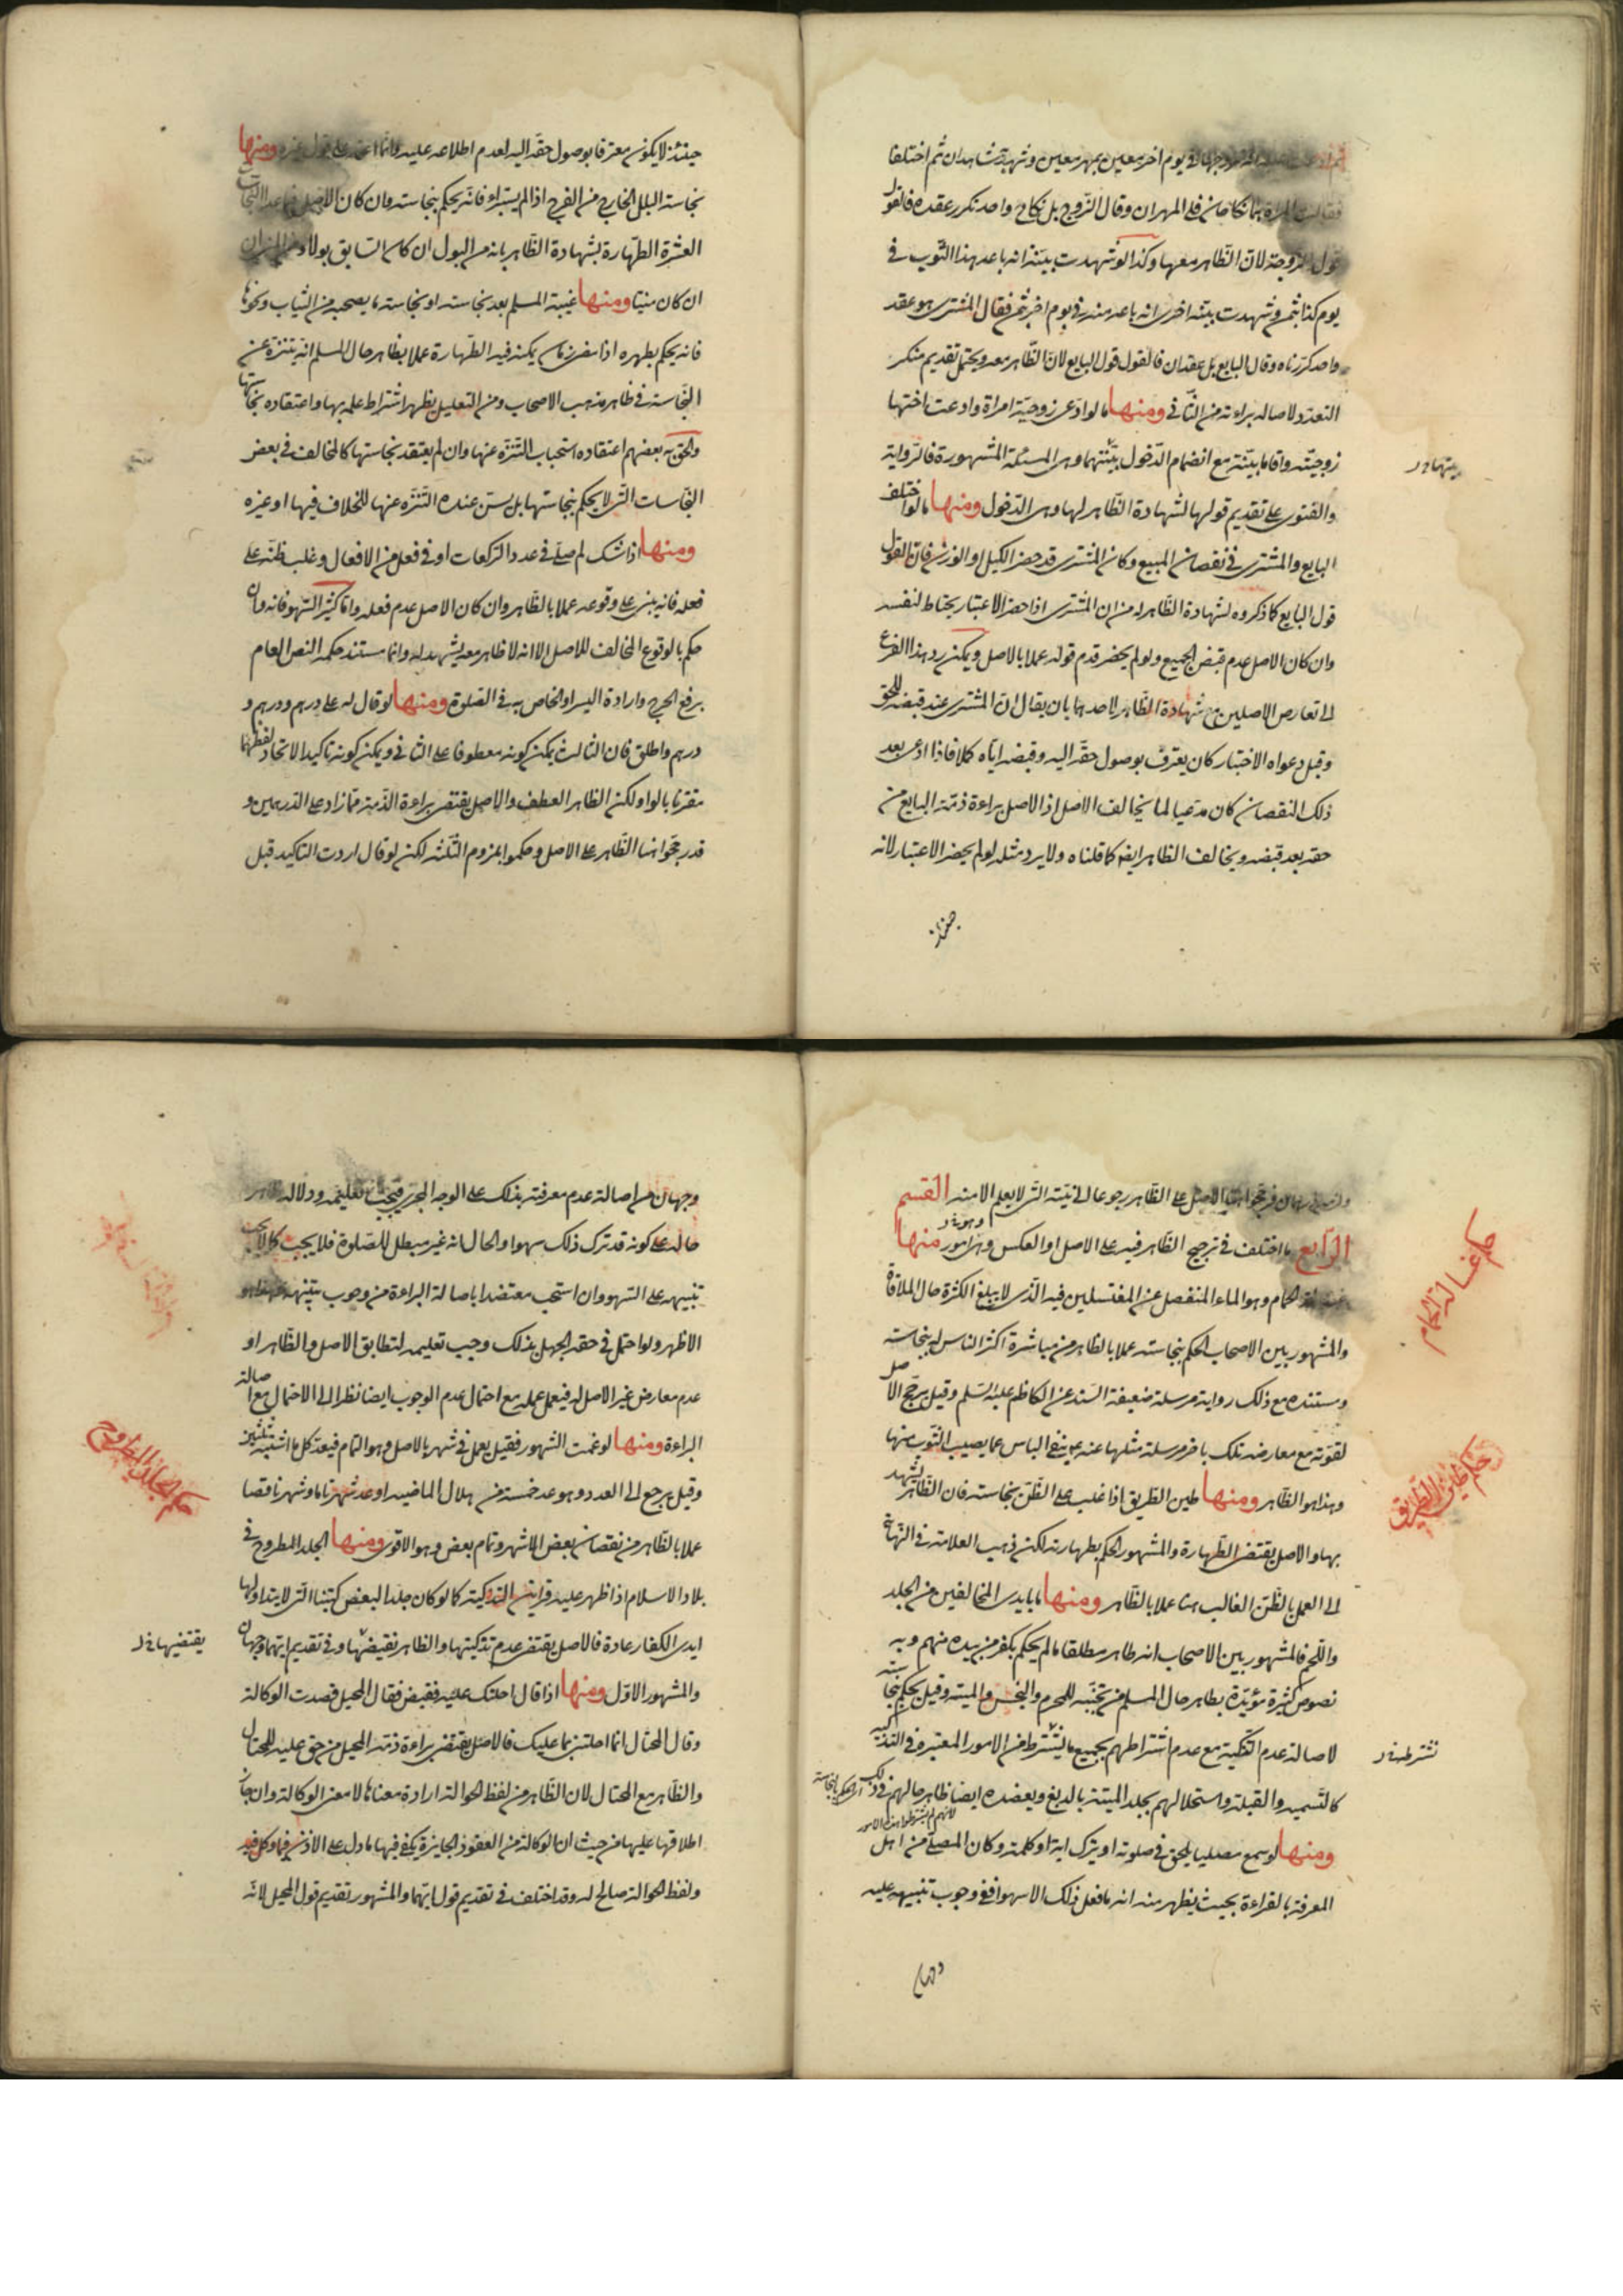 في يوم اخر معين بمهر معين وشهد به شاهدان ثم اختلفا
فقالت المراة هما نكاحان فلي المهران وقال الزوج بل نكاح واحد تكرر عقده فالقول
قول الزوجة لان الظاهر معها وكذا لو شهدت بينة انه باعه هذا الثوب في
يوم كذا بثمن وشهدت بينة اخرى انه باعه منه في يوم اخر بثمن فقال المشتري هو عقد
واحد كررناه وقال البايع بل عقدان فالقول قول البايع لان الظاهر معه ويحتمل تقديم منكر
التعدد لاصالة براءته من الثاني ومنها ما لو ادعى زوجية امراة وادعت اختها
زوجيته واقاما بينة مع انضمام الدخول ببينتهما وهي المسئلة المشهورة فالرواية
بينتها
والفتوى على تقديم قولها لشهادة الظاهر لها وهي الدخول ومنها ما لو اختلف
البايع والمشتري في نقصان المبيع وكان المشتري قد حضر الكيل او الوزن فان القول
قول البايع كما ذكروه لشهادة الظاهر له من ان المشتري اذا حضر الاعتبار يحتاط لنفسه
وان كان الاصل عدم قبض الجميع ولو لم يحضر قدم قوله عملا بالاصل ويمكن رد هذا الفرع
الى تعارض الاصلين مع شهادة الظاهر لاحدهما بان يقال ان المشتري عند قبضه للحق
وقبل دعواه الاختبار كان يعترف بوصول حقه اليه وقبضه اياه كملا فاذا ادعى بعد
ذلك النقصان كان مدعيا لما يخالف الاصل اذ الاصل براءة ذمة البايع من
حقه بعد قبضه ويخالف الظاهر ايضا كما قلناه ولا يرد مثله لو لم يحضر الاعتبار لانه
حينئذ
حينئذ لا يكون معترفا بوصول حقه اليه لعدم اطلاعه عليه وانما اعتمد على قول غيره ومنها
نجاسة البلل الخارج من الفرج اذا لم يستبرء فانه يحكم بنجاسته وان كان الاصل فيما عدا النجاسات
العشرة الطهارة بشهادة الظاهر بانه من البول ان كان السابق بولا ومن المني ان
ان كان منيا ومنها غيبة المسلم بعد نجاسته او نجاسة ما يصحبه من الثياب ونحوها
فانه يحكم بطهره اذا مضى زمان يمكنه فيه الطهارة عملا بظاهر حال المسلم انه يتنزه عن
النجاسة في ظاهر مذهب الاصحاب ومن التعليل يظهر اشتراط علمه بها واعتقاده نجاستها
والحق به بعضهم اعتقاده استحباب التنزه عنها وان لم يعتقد نجاستها كالمخالف في بعض
النجاسات التي لا يحكم بنجاستها بل يسن عنده التنزه عنها للخلاف فيها او غيره
ومنها اذا شك المصلي في عدد الركعات او في فعل من الافعال وغلب ظنه على
فعله فانه يبني على وقوعه عملا بالظاهر وان كان الاصل عدم فعله واما كثير السهو فانه وان
حكم بالوقوع المخالف للاصل الا انه لا ظاهر معه يشهد له وانما مستند حكمه النص العام
برفع الحرج وارادة اليسر او الخاص به في الصلوة ومنها لو قال له علي درهم ودرهم و
درهم واطلق فان الثالث يمكن كونه معطوفا على الثاني ويمكن كونه تاكيدا لاتحاد لفظهما
مقترنا بالواو لكن الظاهر العطف والاصل يقتضي براءة الذمة مما زاد على الدرهمين و
قد رجحوا هنا الظاهر على الاصل وحكموا بلزوم الثلثة لكن لو قال اردت التاكيد قبل
فرجحوا الاصل على الظاهر رجوعا الى نيته التي لا يعلم الا منه القسم
الرابع ما اختلف في ترجيح الظاهر فيه على الاصل او العكس وهو امور منها
حكم غسالة الحمام
غسالة الحمام وهو الماء المنفصل عن المغتسلين فيه الذي لا يبلغ الكثرة حال الملاقاة
والمشهور بين الاصحاب الحكم بنجاسته عملا بالظاهر من مباشرة اكثر الناس له بنجاسة
ومستنده مع ذلك رواية مرسلة ضعيفة السند عن الكاظم عليه السلم وقيل يرجح الاصل
لقوته مع معارضة تلك باخرى مرسلة مثلها عنه ع بنفي الباس عما يصيب الثوب منها
وهذا هو الظاهر ومنها طين الطريق اذا غلب على الظن نجاسته فان الظاهر يشهد
حكم طين الطريق
بها والاصل يقتضي الطهارة والمشهور الحكم بطهارته لكن ذهب العلامة في النهاية
الى العمل بالظن الغالب هنا عملا بالظاهر ومنها ما بايدي المخالفين من الجلد
واللحم فالمشهور بين الاصحاب انه طاهر مطلقا ما لم يحكم بكفر من بيده منهم وبه
نصوص كثيرة مؤيدة بظاهر حال المسلم من تجنبه للمحرم والنجس والميتة وقيل يحكم بنجاسته
لاصالة عدم التذكية مع عدم اشتراطهم لجميع ما يشترط من الامور المعتبرة في التذكية
نشترطه
كالتسمية والقبلة واستحلالهم جلد الميتة بالدبغ ويعضده ايضا ظاهر حالهم في ذلك
لانهم لم يشترطوا هذه الامور
ومنها لو سمع مصليا يلحن في صلوته او يترك اية او كلمة وكان المصلي من اهل
المعرفة بالقراءة بحيث يظهر منه انه ما فعل ذلك الا سهوا ففي وجوب تنبيهه عليه
وجهان
وجهان من اصالة عدم معرفته بذلك على الوجه المجزي فيجب تعليمه ودلالة ظاهر
حاله على كونه قد ترك ذلك سهوا والحال انه غير مبطل للصلوة فلا يجب كما لا يجب
تنبيهه على السهو وان استحب معتضدا باصالة البراءة من وجوب تنبيهه وهذا هو
الاظهر ولو احتمل في حقه الجهل بذلك وجب تعليمه لتطابق الاصل والظاهر او
عدم معارض غير الاصل له فيعمل عمله مع احتمال عدم الوجوب ايضا نظرا الى الاحتمال مع اصالة
البراءة ومنها لو غمت الشهور فقيل يعمل في شهر بالاصل وهو التمام فيعد كل ما اشتبه ثلثين
حكم الجلد المطروح
وقيل يرجع الى العدد وهو عد خمسة من هلال الماضية او عد شهر تاما وشهر ناقصا
عملا بالظاهر من نقصان بعض الاشهر وتمام بعض وهو الاقوى ومنها الجلد المطروح في
بلاد الاسلام اذا ظهر عليه قراين التذكية كما لو كان جلدا لبعض كتبنا التي لا يتداولها
ايدي الكفار عادة فالاصل يقتضي عدم تذكيتها والظاهر نقيضها وفي تقديم ايهما وجهان
يقتضيها
والمشهور الاول ومنها اذا قال احلتك عليه فقبض فقال المحيل قصدت الوكالة
وقال المحتال انما احلتني بما عليك فالاصل يقتضي براءة ذمة المحيل من حق عليه للمحتال
والظاهر مع المحتال لان الظاهر من لفظ الحوالة ارادة معناها لا معنى الوكالة وان جاز
اطلاقها عليها من حيث ان الوكالة من العقود الجايزة يكفي فيها ما دل على الاذن فيما وكل فيه
ولفظ الحوالة صالح له وقد اختلف في تقديم قول ايهما والمشهور تقديم قول المحيل لانه